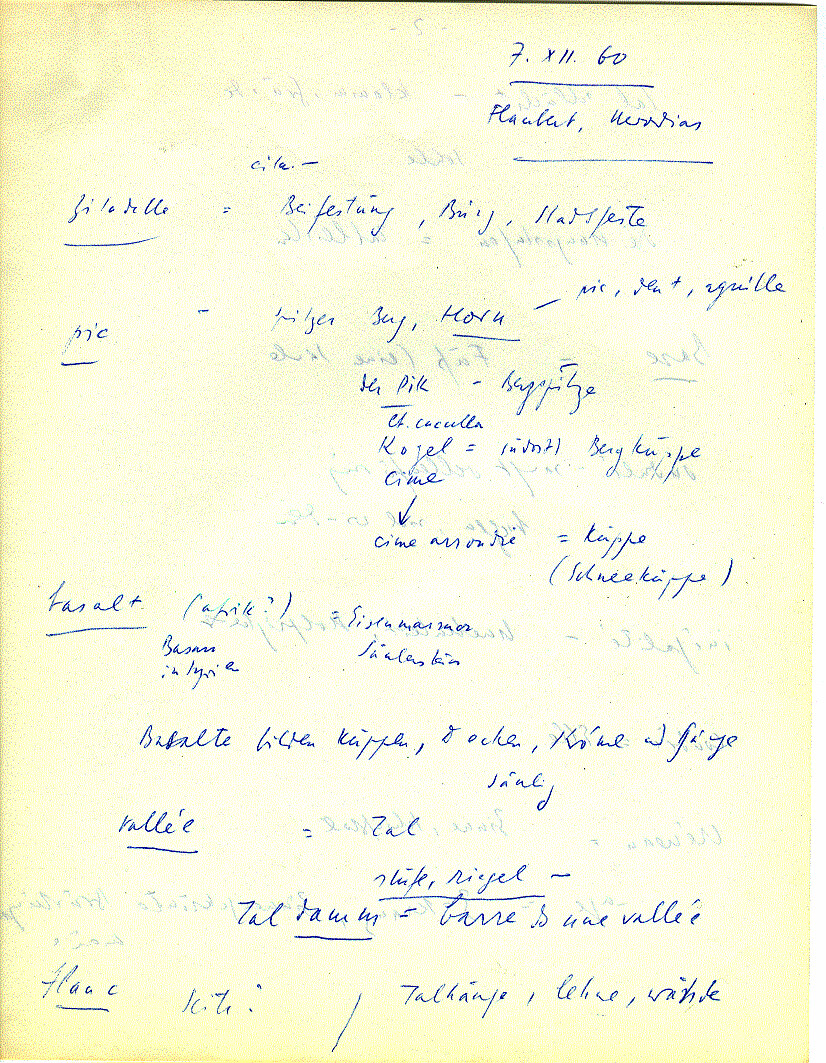 7. XII. 60
Flaubert, Herodias
cita. –
Zitadelle = Beifestung, Burg, Stadtfeste
pic – spitzer Berg, Horn – pic, dent, aguille
der Pik – Bergspitze
lt. cuculla
Kogel = südostl Bergkuppe
cime
cime arrondie = Kuppe
(Schneekuppe)
basalt (afrik?) Eisenmarmor
Basan in Syrien Säulenstein
Basalte bilden Kuppen, Decken, Ströme und Gänge
säulig
vallée = Tal
stufe, riegel –
Tal damm = barre d'une vallée
flanc Seite? / Talhänge, lehne, wände